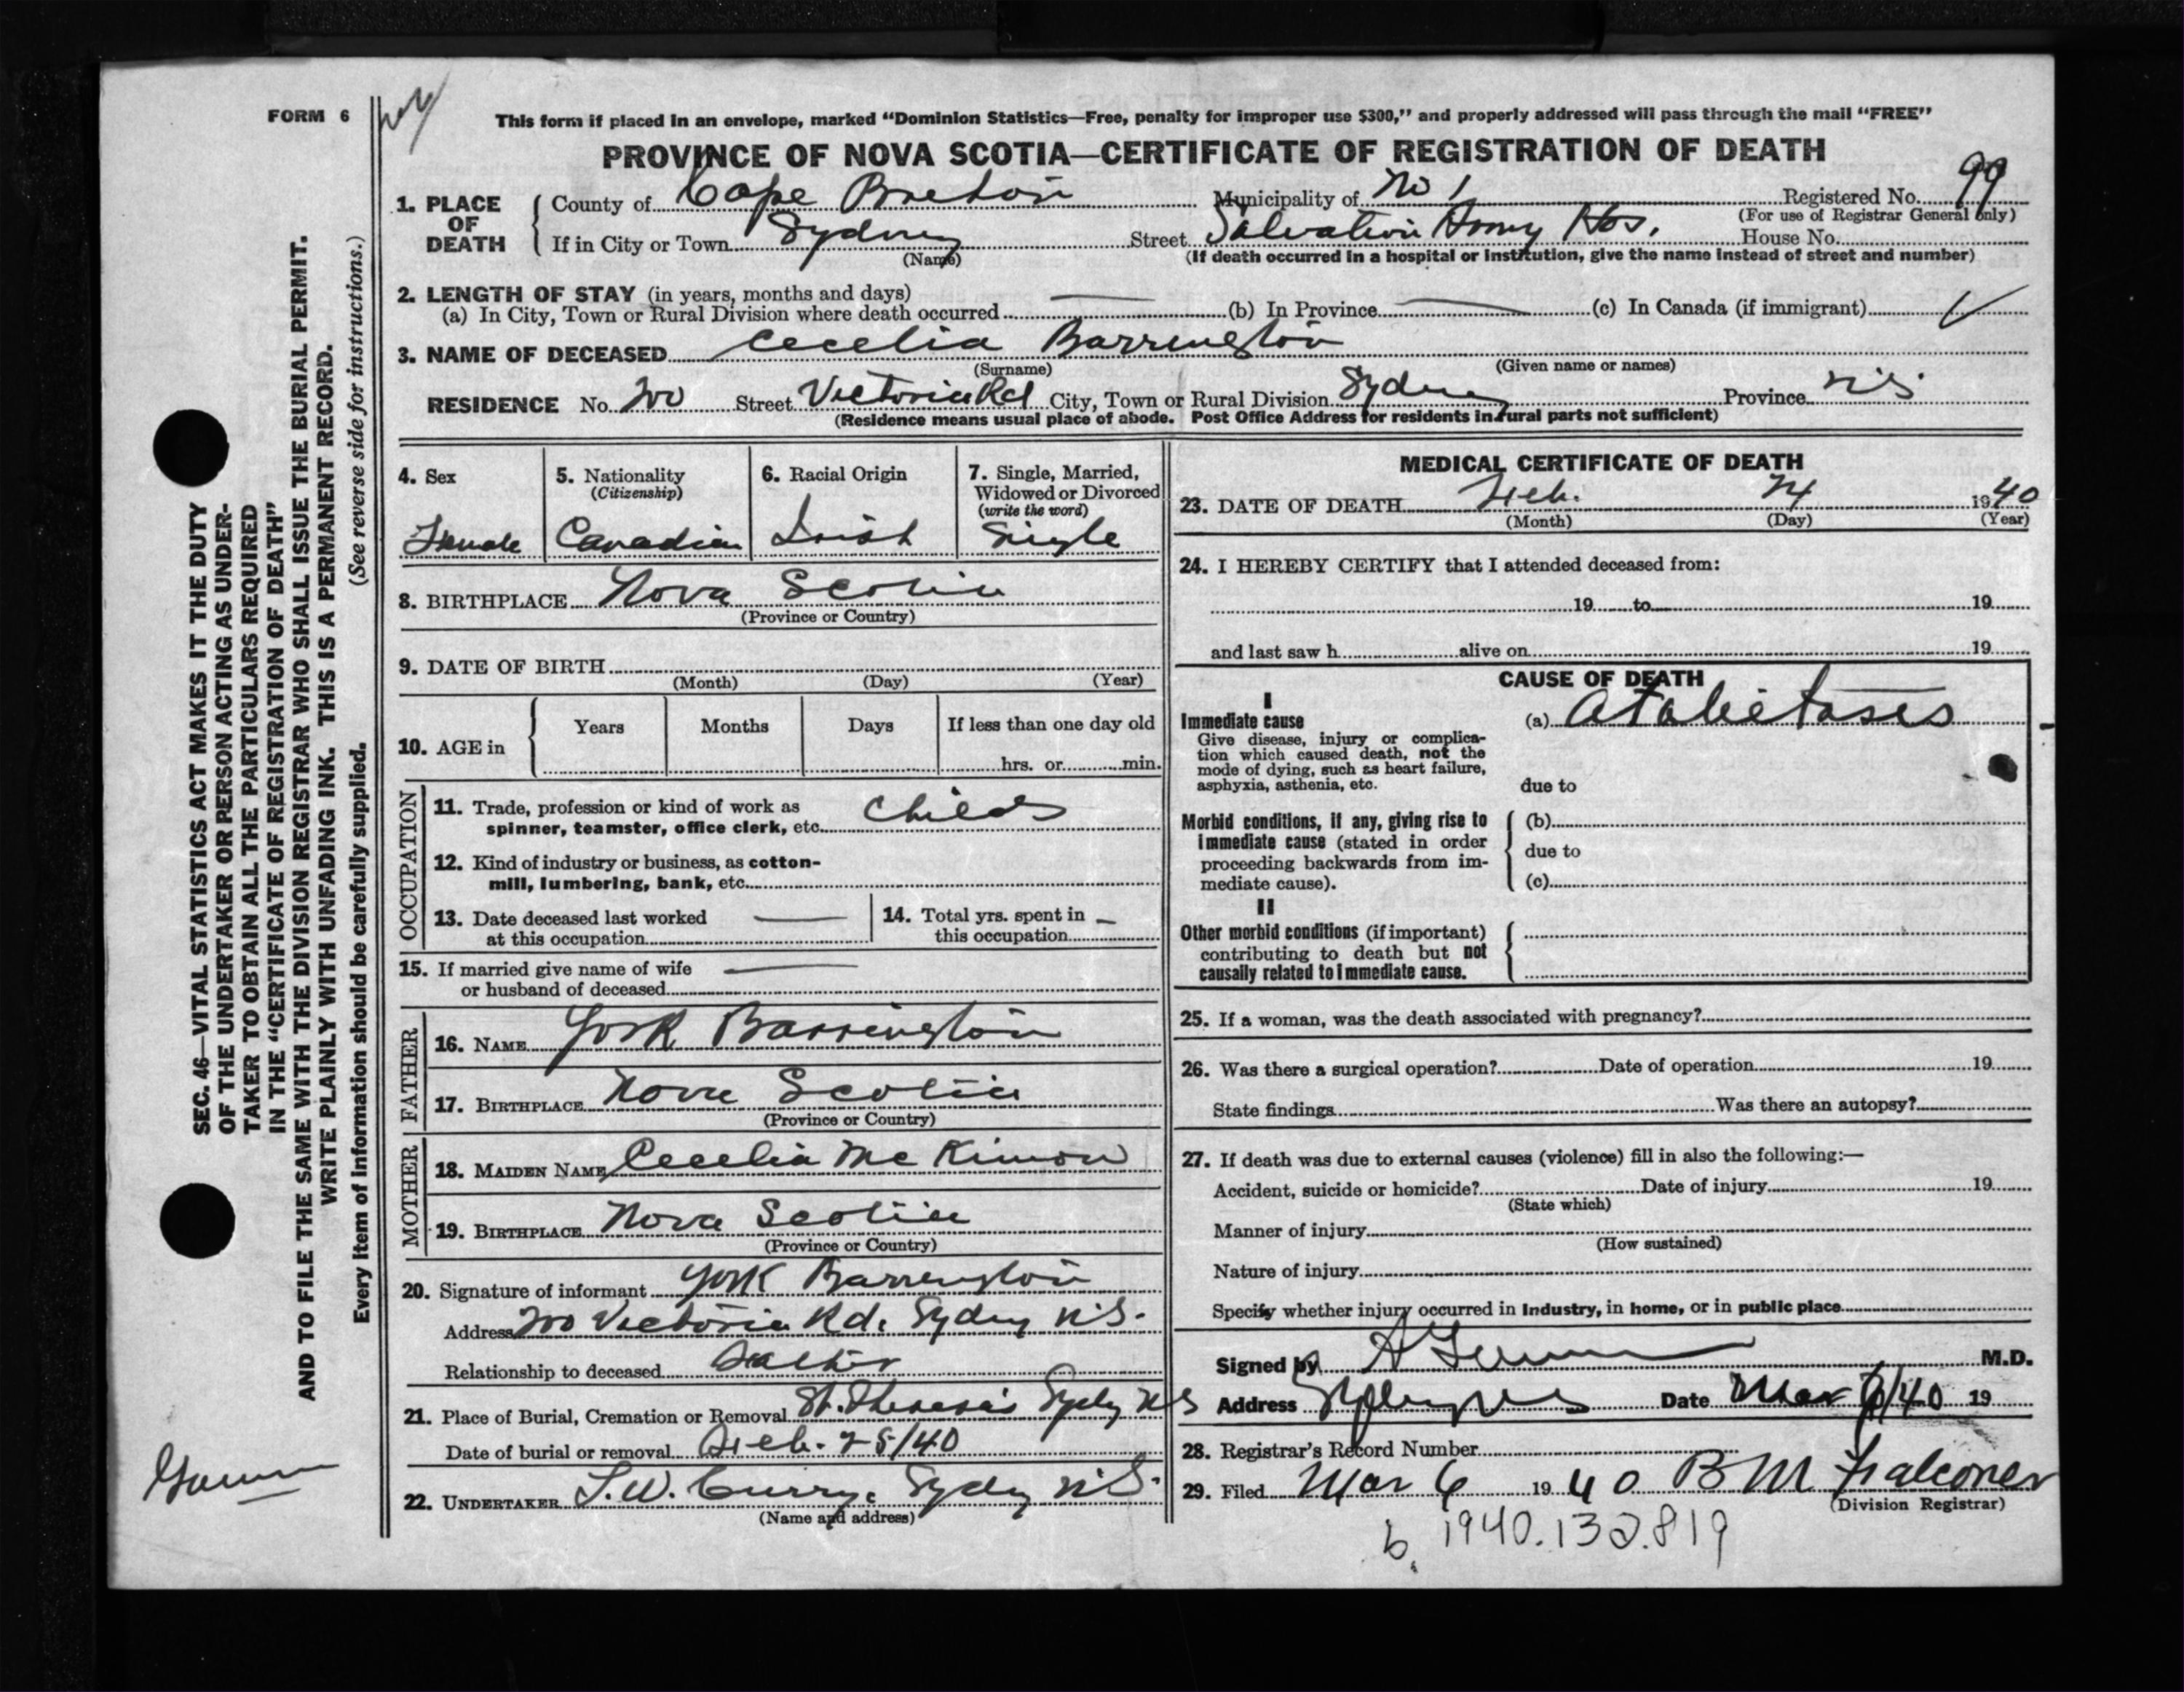 FORM 6
This form if placed in an envelope, marked “Dominion Statistics—Free, penalty for improper use $300,” and properly addressed will pass through the mail “FREE”
PROVINCE OF NOVA SCOTIA—CERTIFICATE OF REGISTRATION OF DEATH
1. PLACE OF DEATH
County of Cape Breton Municipality of No 1 Registered No. 99
(For use of Registrar General only)
If in City or Town Sydney Street Salvation Army Hos. House No.
(Name) (If death occurred in a hospital or institution, give the name instead of street and number)
2. LENGTH OF STAY (in years, months and days)
(a) In City, Town or Rural Division where death occurred — (b) In Province — (c) In Canada (if immigrant) ✓
3. NAME OF DECEASED Cecelia Barrington
(Surname) (Given name or names)
RESIDENCE No. 200 Street Victoria Rd City, Town or Rural Division Sydney Province N.S.
(Residence means usual place of abode. Post Office Address for residents in rural parts not sufficient)
4. Sex
Female
5. Nationality
(Citizenship)
Canadian
6. Racial Origin
Irish
7. Single, Married,
Widowed or Divorced
(write the word)
Single
8. BIRTHPLACE Nova Scotia
(Province or Country)
9. DATE OF BIRTH
(Month) (Day) (Year)
10. AGE in
Years Months Days If less than one day old
hrs. or min.
OCCUPATION
11. Trade, profession or kind of work as
spinner, teamster, office clerk, etc. Child
12. Kind of industry or business, as cotton-
mill, lumbering, bank, etc.
13. Date deceased last worked —
at this occupation
14. Total yrs. spent in —
this occupation
15. If married give name of wife —
or husband of deceased
FATHER
16. NAME York Barrington
17. BIRTHPLACE Nova Scotia
(Province or Country)
MOTHER
18. MAIDEN NAME Cecelia Mc Kinnon
19. BIRTHPLACE Nova Scotia
(Province or Country)
20. Signature of informant York Barrington
Address 200 Victoria Rd. Sydney N.S.
Relationship to deceased Father
21. Place of Burial, Cremation or Removal St. Theresa's Sydney N S
Date of burial or removal Feb. 25/40
22. UNDERTAKER T.W. Curry, Sydney N.S.
(Name and address)
MEDICAL CERTIFICATE OF DEATH
23. DATE OF DEATH Feb. 24 1940
(Month) (Day) (Year)
24. I HEREBY CERTIFY that I attended deceased from:
19 to 19
and last saw h alive on 19
CAUSE OF DEATH
I
Immediate cause
Give disease, injury or complica-
tion which caused death, not the
mode of dying, such as heart failure,
asphyxia, asthenia, etc.
(a) Atalietasis
due to
Morbid conditions, if any, giving rise to
immediate cause (stated in order
proceeding backwards from im-
mediate cause).
(b)
due to
(c)
II
Other morbid conditions (if important)
contributing to death but not
causally related to immediate cause.
25. If a woman, was the death associated with pregnancy?
26. Was there a surgical operation? Date of operation 19
State findings Was there an autopsy?
27. If death was due to external causes (violence) fill in also the following:—
Accident, suicide or homicide? Date of injury 19
(State which)
Manner of injury
(How sustained)
Nature of injury
Specify whether injury occurred in industry, in home, or in public place
Signed by M.D.
Address Sydney NS Date Mar /40 19
28. Registrar's Record Number
29. Filed Mar 6 1940 B M Falconer
(Division Registrar)
b. 1940.132.819
SEC. 46—VITAL STATISTICS ACT MAKES IT THE DUTY
OF THE UNDERTAKER OR PERSON ACTING AS UNDER-
TAKER TO OBTAIN ALL THE PARTICULARS REQUIRED
IN THE “CERTIFICATE OF REGISTRATION OF DEATH”
AND TO FILE THE SAME WITH THE DIVISION REGISTRAR WHO SHALL ISSUE THE BURIAL PERMIT.
WRITE PLAINLY WITH UNFADING INK. THIS IS A PERMANENT RECORD.
(See reverse side for instructions.)
Every item of information should be carefully supplied.